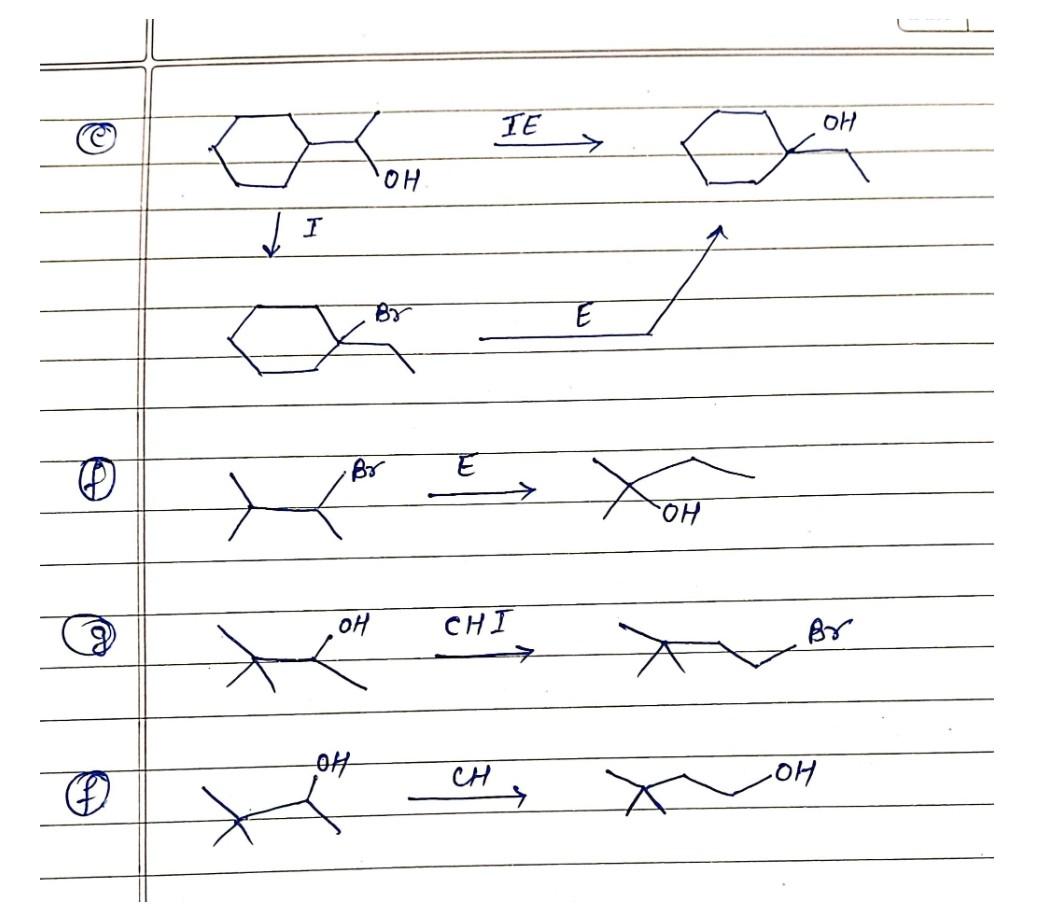 e IE OH
OH
I
Br E
f Br E
OH
g OH CHI Br
f OH CH OH